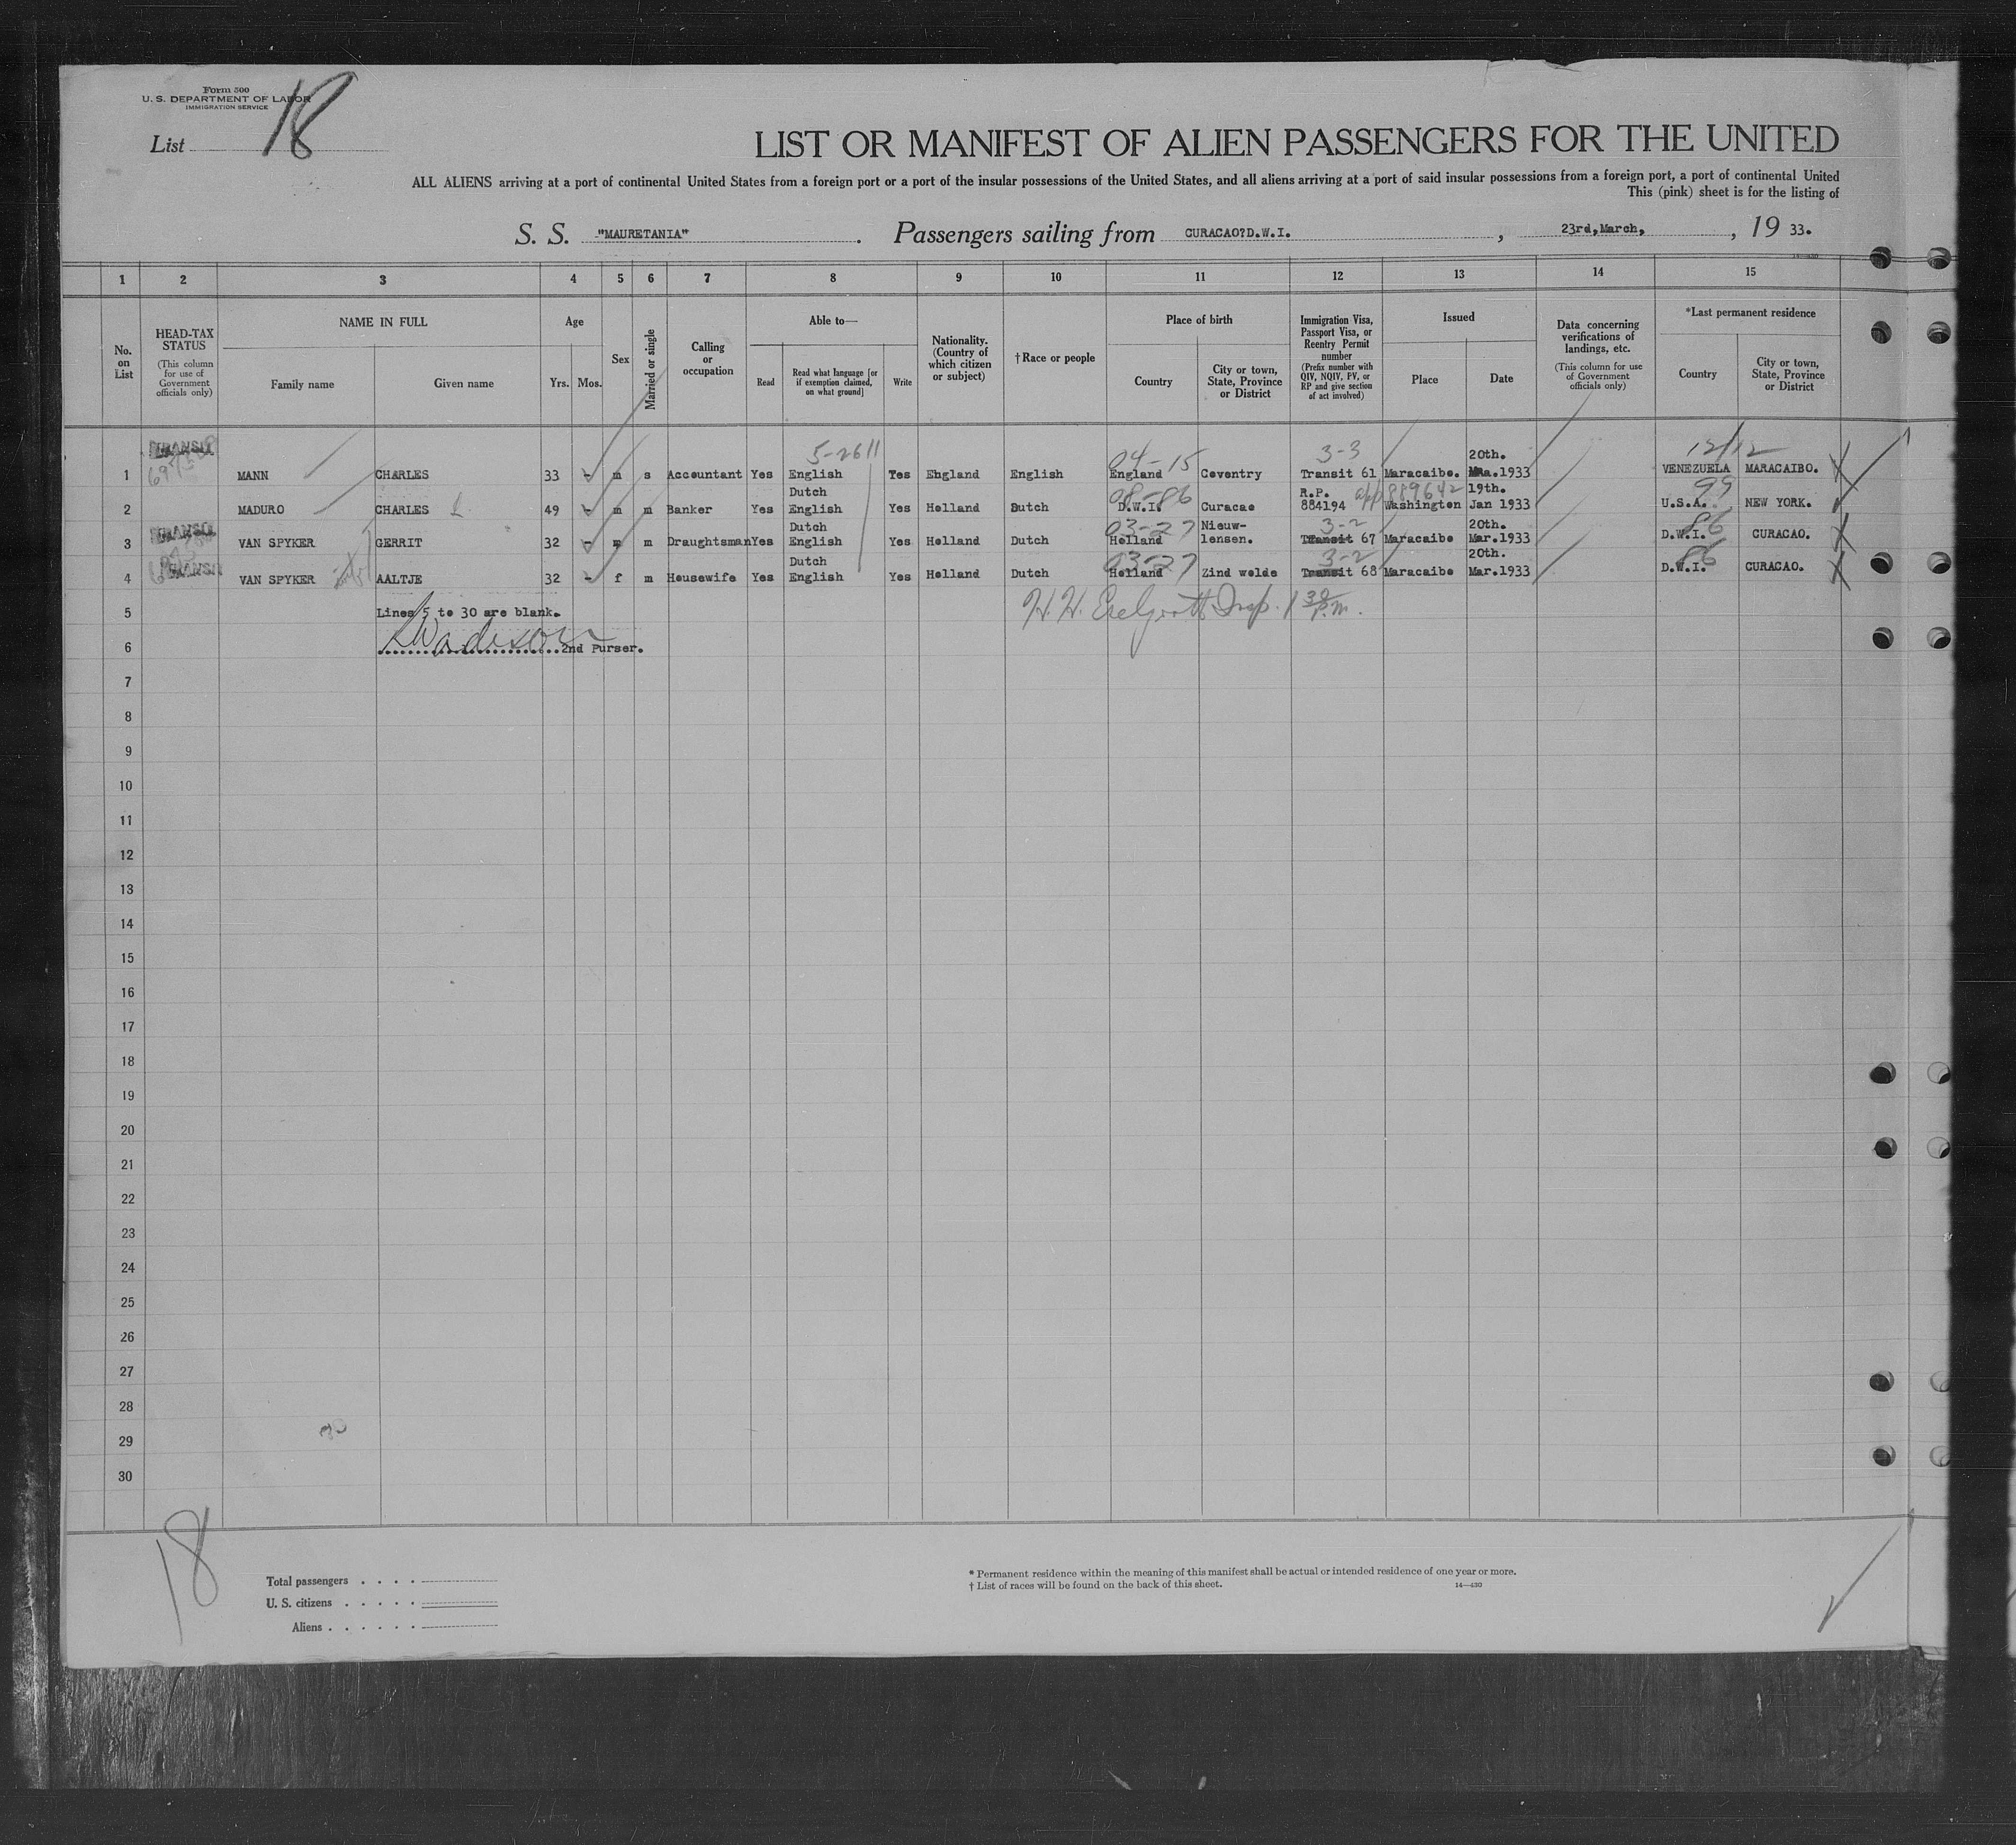 Form 500
U. S. DEPARTMENT OF LABOR
IMMIGRATION SERVICE
List 18
LIST OR MANIFEST OF ALIEN PASSENGERS FOR THE UNITED
ALL ALIENS arriving at a port of continental United States from a foreign port or a port of the insular possessions of the United States, and all aliens arriving at a port of said insular possessions from a foreign port, a port of continental United
This (pink) sheet is for the listing of
S. S. "MAURETANIA". Passengers sailing from CURACAO?D.W.I., 23rd,March, , 19 33.
14—430
1 2 3 4 5 6 7 8 9 10 11 12 13 14 15
No. on List
HEAD-TAX STATUS (This column for use of Government officials only)
NAME IN FULL Family name Given name
Age Yrs. Mos.
Sex
Married or single
Calling or occupation
Able to— Read Read what language [or if exemption claimed, on what ground] Write
Nationality. (Country of which citizen or subject)
† Race or people
Place of birth Country City or town, State, Province or District
Immigration Visa, Passport Visa, or Reentry Permit number (Prefix number with QIV, NQIV, PV, or RP and give section of act involved)
Issued Place Date
Data concerning verifications of landings, etc. (This column for use of Government officials only)
*Last permanent residence Country City or town, State, Province or District
TRANSIT 5-2611 04-15 3-3 20th. 12/12
1 MANN CHARLES 33 - m s Accountant Yes English Yes Ehgland English England Coventry Transit 61 Maracaibo. Mar.1933 VENEZUELA MARACAIBO.
Dutch 08-86 R.P. app 889642 19th. 99
2 MADURO CHARLES L 49 - m m Banker Yes English Yes Holland Dutch D.W.I. Curacao 884194 Washington Jan 1933 U.S.A. NEW YORK.
TRANSIT Dutch 03-27 Nieuw- 3-2 20th. 86
3 VAN SPYKER GERRIT 32 - m m Draughtsman Yes English Yes Holland Dutch Holland lensen. Transit 67 Maracaibo Mar.1933 D.W.I. CURACAO.
TRANSIT Dutch 03-27 3-2 20th. 86
4 VAN SPYKER AALTJE 32 - f m Housewife Yes English Yes Holland Dutch Holland Zind welde Transit 68 Maracaibo Mar.1933 D.W.I. CURACAO.
5 Lines 5 to 30 are blank. H. H. Insp. 1 30 P.M.
6 2nd Purser.
7
8
9
10
11
12
13
14
15
16
17
18
19
20
21
22
23
24
25
26
27
28
29
30
18
Total passengers . . . .
U. S. citizens . . . . .
Aliens . . . . . .
* Permanent residence within the meaning of this manifest shall be actual or intended residence of one year or more.
† List of races will be found on the back of this sheet. 14—430